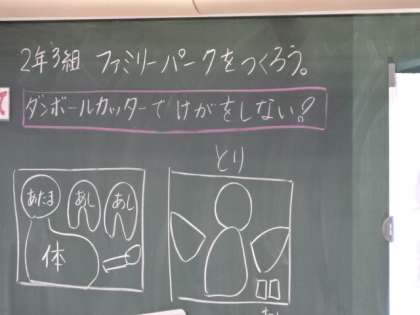 2年3組 ファミリーパークをつくろう。
ダンボールカッターでけがをしない?
とり
あたま あし あし
体